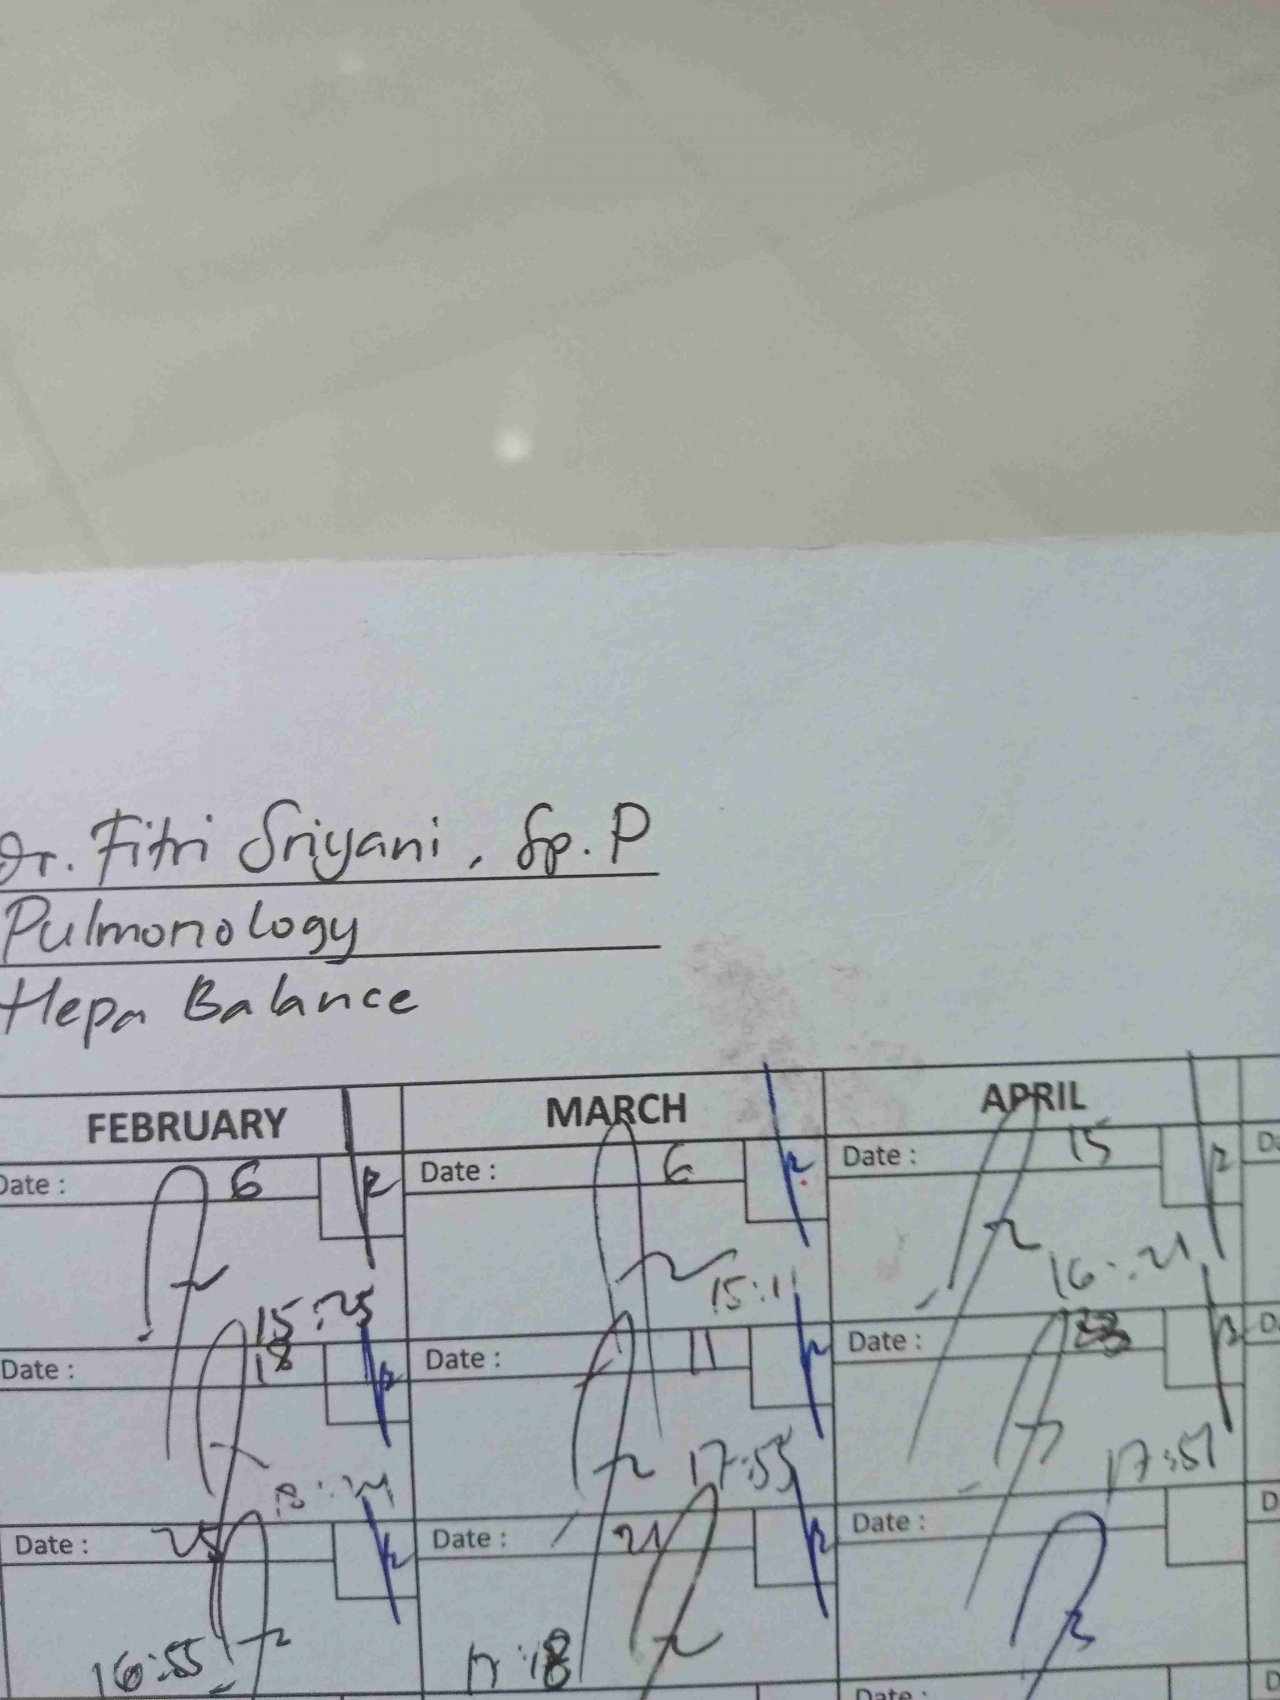 Dr. Fitri Sriyani, Sp. P
Pulmonology
Hepa Balance
FEBRUARY MARCH APRIL
Date : 6 Date : 6 Date : 15
15:25 15:11 16:21
Date : 18 Date : 11 Date :
17:55 17:57
Date : 25 Date : 21 Date :
16:55 17:18
Date :